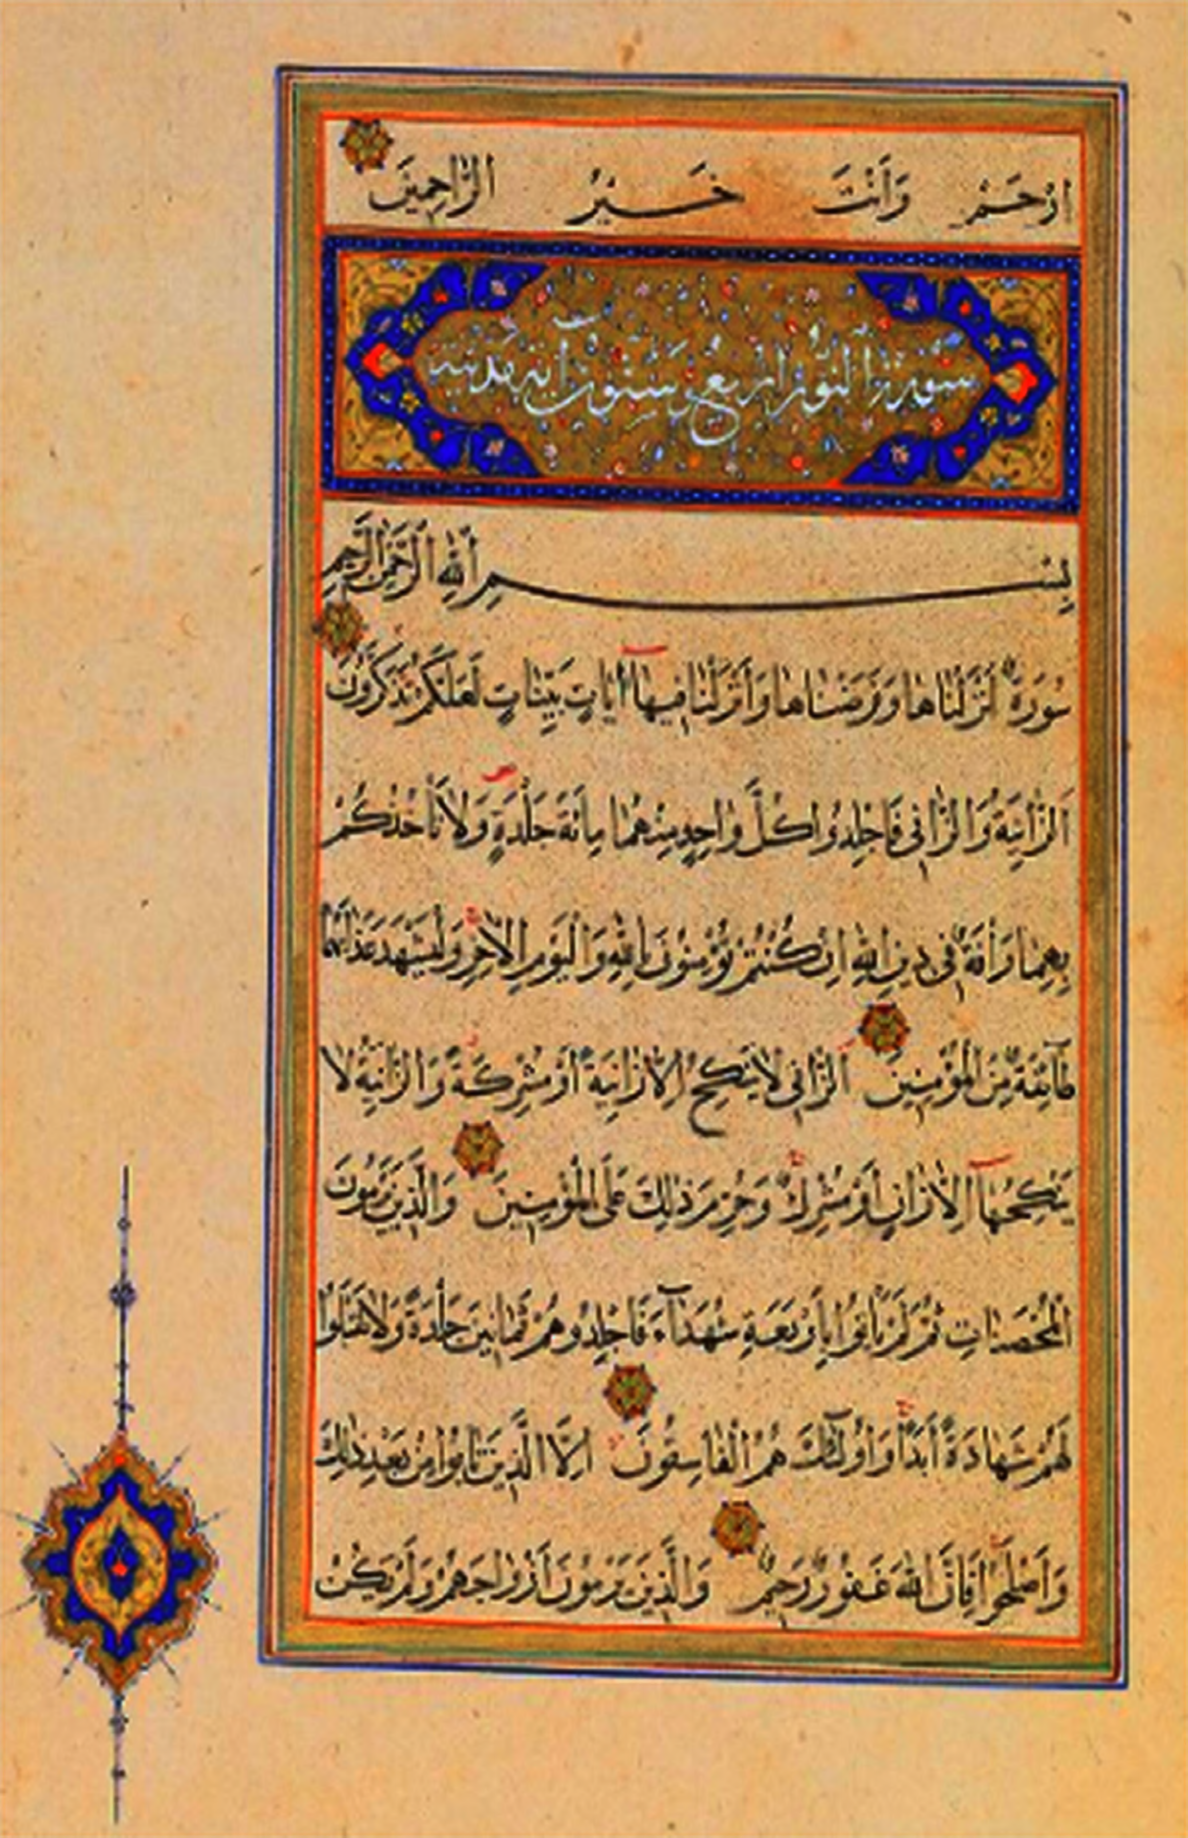 ارْحَمْ وَأَنْتَ خَيْرُ الرَّاحِمِينَ
سورة النور اربع وستون آية مدنية
بِسْمِ اللَّهِ الرَّحْمٰنِ الرَّحِيمِ
سُورَةٌ أَنْزَلْنَاهَا وَفَرَضْنَاهَا وَأَنْزَلْنَا فِيهَا آيَاتٍ بَيِّنَاتٍ لَعَلَّكُمْ تَذَكَّرُونَ
اَلزَّانِيَةُ وَالزَّانِي فَاجْلِدُوا كُلَّ وَاحِدٍ مِنْهُمَا مِائَةَ جَلْدَةٍ وَلَا تَأْخُذْكُمْ
بِهِمَا رَأْفَةٌ فِي دِينِ اللَّهِ اِنْ كُنْتُمْ تُؤْمِنُونَ بِاللَّهِ وَالْيَوْمِ الْآخِرِ وَلْيَشْهَدْ عَذَابَهُمَا
طَائِفَةٌ مِنَ الْمُؤْمِنِينَ اَلزَّانِي لَا يَنْكِحُ اِلَّا زَانِيَةً أَوْ مُشْرِكَةً وَالزَّانِيَةُ لَا
يَنْكِحُهَا اِلَّا زَانٍ أَوْ مُشْرِكٌ وَحُرِّمَ ذٰلِكَ عَلَى الْمُؤْمِنِينَ وَالَّذِينَ يَرْمُونَ
الْمُحْصَنَاتِ ثُمَّ لَمْ يَأْتُوا بِأَرْبَعَةِ شُهَدَآءَ فَاجْلِدُوهُمْ ثَمَانِينَ جَلْدَةً وَلَا تَقْبَلُوا
لَهُمْ شَهَادَةً أَبَدًا وَاُولٰٓئِكَ هُمُ الْفَاسِقُونَ اِلَّا الَّذِينَ تَابُوا مِنْ بَعْدِ ذٰلِكَ
وَأَصْلَحُوا فَاِنَّ اللَّهَ غَفُورٌ رَحِيمٌ وَالَّذِينَ يَرْمُونَ أَزْوَاجَهُمْ وَلَمْ يَكُنْ